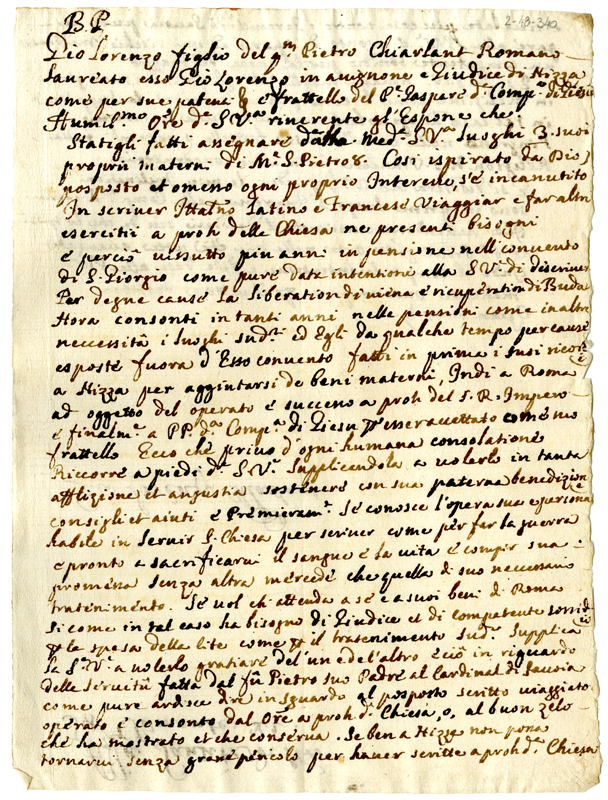 2-48-340
B.P.
Pio Lorenzo figlio del qm Pietro Chiarlant Romano
laureato esso Pio Lorenzo in avignone e Giudice di Nizza
come per sue patenti e frattello del Pe Gaspare da Compa di Giesu
Humilmo Ore da S.Va riverente gl'Espone che
Statigli fatti assegnare dalla Meda S.Va luoghi 3 suoi
proprii materni di Me S. Pietro 8. Cosi ispirato da Dio
posposto et omeno ogni proprio Interesse, s'é incanutito
In scriver Latino e Francese Viaggiar e far altri
esercitii a proh delle Chiesa ne presenti bisogni
é perciò vissutto piu anni in pensione nell'convento
di S. Giorgio come pure date intentioni alla S.Va di descriver
Per degne cause la liberation di viena é ricuperation di Buda
Hora consonti in tanti anni nelle pensioni come in altre
neccessità i luoghi sudi ed Egli da qualche tempo per cause
esposte fuora d'Esso convento fatti in prima i suoi ricorsi
a Nizza per aggiutarsi de beni materni, Indi a Roma
ad oggetto del operato é successo a proh del S.R. Impero
é finalme a PP. da Compa di Giesu per esser accettato come suo
frattello Ecco che privo d'ogni humana consolatione
Riccorre a piedi da S.Va supplicandola a volerlo in tanta
afflizione et angustia sostenere con sua paterna benedizione
consigli et aiuti é Premieramte Se conosce l'opera sua e persona
habile in servir S. Chiesa per scriver come per far la guerra
e pronto a sacrificarvi il sangue é la vita é compir sua
promessa senza altra mercede che quella di suo necessario
tratenimento. Se vol ch'attenda a se e a suoi beni di Roma
Si come in tal caso ha bisogno di Giudice et di competente
per la spesa della lite come per il tratenimento sudo supplica
la S.Va a volerlo gratiare del'un e del'altro é ciò in riguardo
delle servitù fatta dal fù Pietro suo Padre al Cardinal di Savoia
come pure ardisce dire in sguardo al posposto scritto viaggiato
operato é consonto dal Ore a proh da Chiesa, o, al buon zelo
che ha mostrato et che conserva. Se ben a Nizza non possa
tornarvi senza grave pericolo per haver scritte a proh da Chiesa